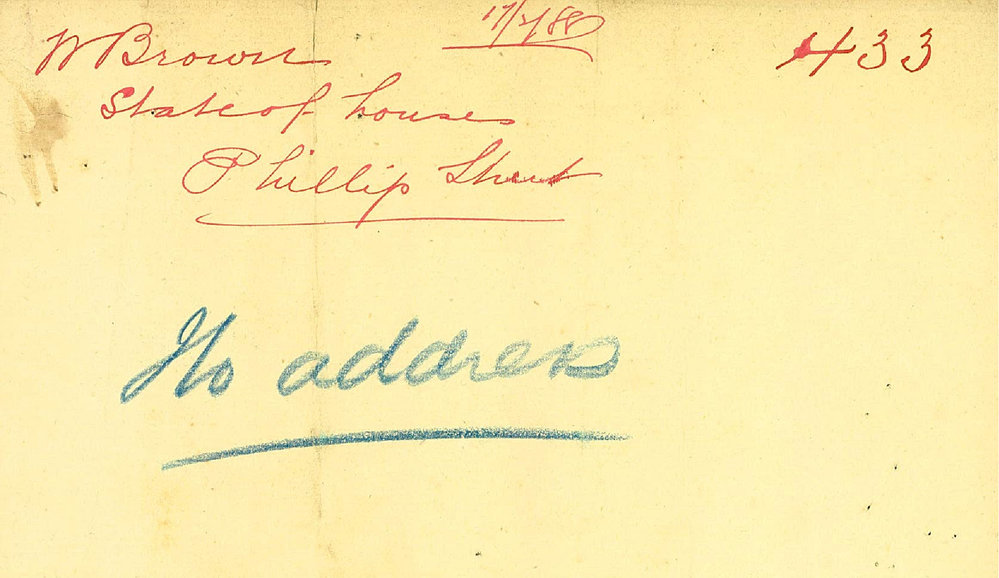 17/7/88
W Brown
433
State of houses
Phillip Street
No address